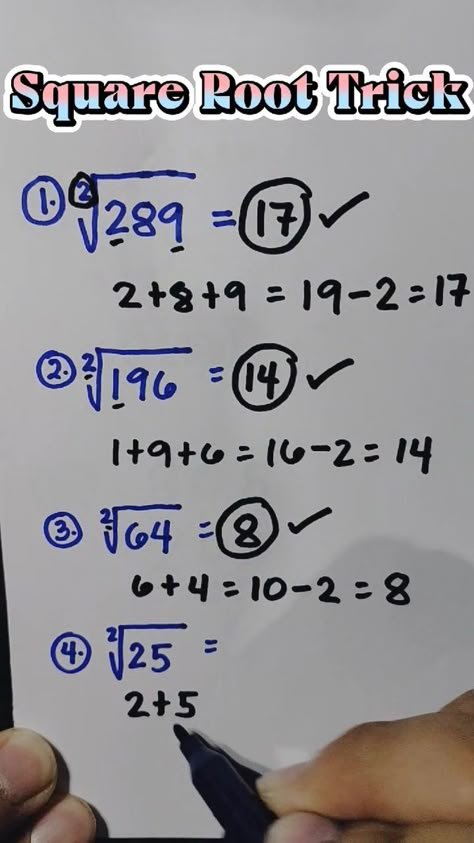 Square Root Trick
1. ²√289 = 17 ✓
2+8+9 = 19-2=17
2. ²√196 = 14 ✓
1+9+6=16-2=14
3. ²√64 = 8 ✓
6+4=10-2=8
4. ²√25 =
2+5